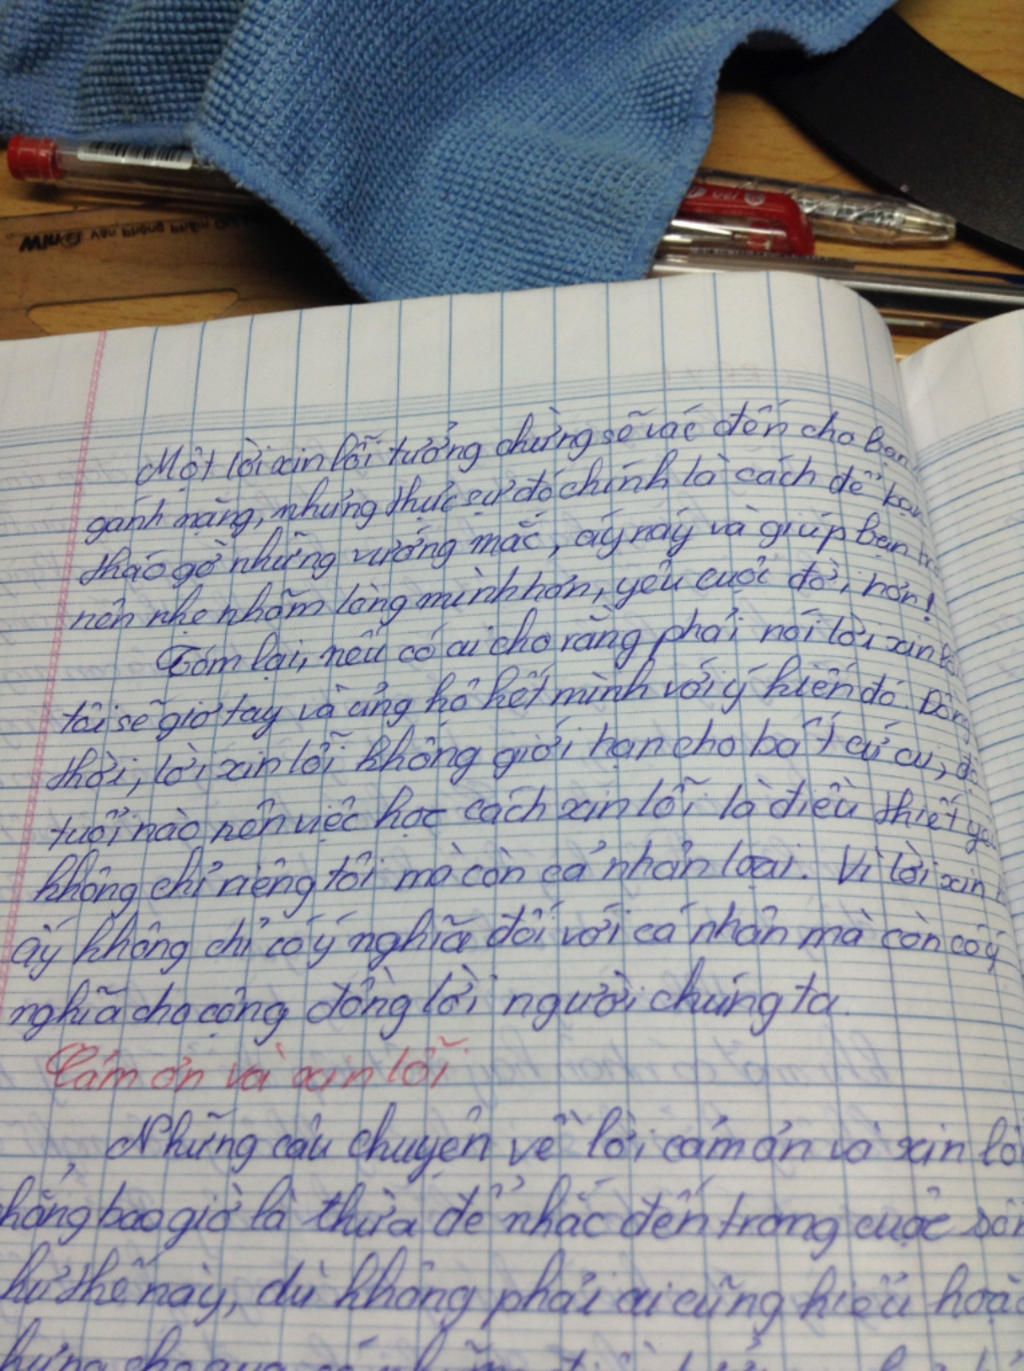 Văn Phòng Phẩm
Một lời xin lỗi tưởng chừng sẽ vác đến cho bạn
gánh nặng, nhưng thực sự đó chính là cách để bạn
tháo gỡ những vướng mắc, áy náy và giúp bạn
nên nhẹ nhõm lòng mình hơn, yêu cuộc đời hơn!
Tóm lại, nếu có ai cho rằng phải nói lời xin
tôi sẽ giơ tay và ủng hộ hết mình với ý kiến đó. Đồng
thời, lời xin lỗi không giới hạn cho bất cứ ai, độ
tuổi nào nên việc học cách xin lỗi là điều thiết yếu
không chỉ riêng tôi mà còn cả nhân loại. Vì lời xin
ấy không chỉ có ý nghĩa đối với cá nhân mà còn có ý
nghĩa cho cộng đồng lời người chúng ta.
Cám ơn và xin lỗi
Những câu chuyện về lời cám ơn và xin lỗi
bao giờ là thừa để nhắc đến trong cuộc
thế này, dù không phải ai cũng hiểu